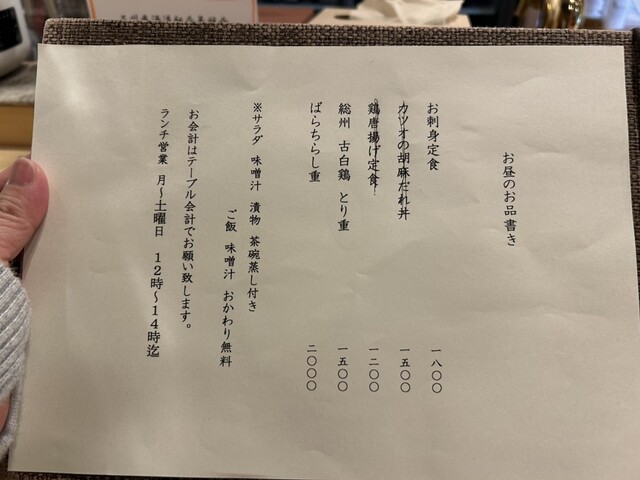 お昼のお品書き
お刺身定食 一八〇〇
カツオの胡麻だれ丼 一五〇〇
鶏唐揚げ定食 一二〇〇
総州 古白鶏 とり重 一五〇〇
ばらちらし重 二〇〇〇
※サラダ 味噌汁 漬物 茶碗蒸し付き
ご飯 味噌汁 おかわり無料
お会計はテーブル会計でお願い致します。
ランチ営業 月～土曜日 12時～14時迄